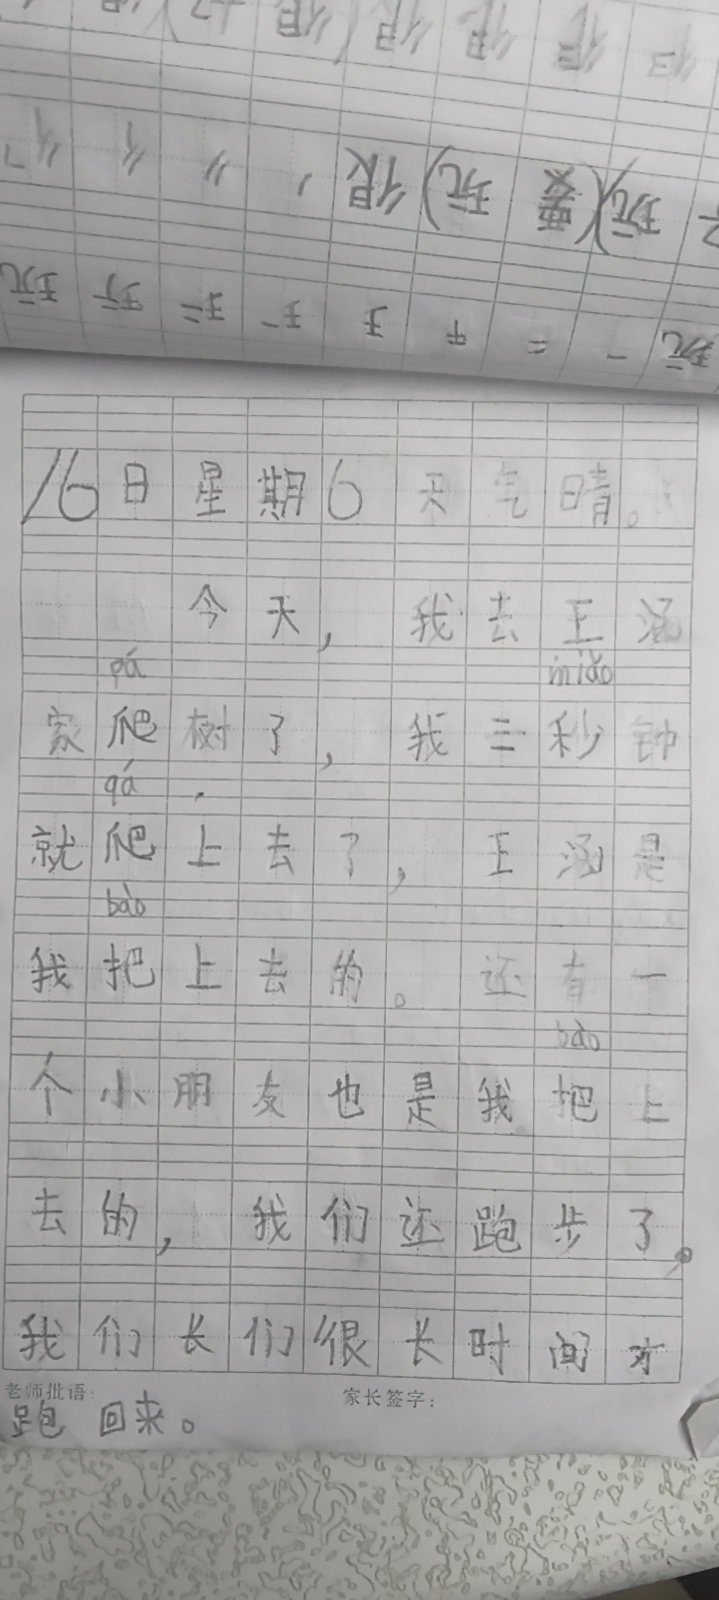 玩一二干王玨玩
玩(要玩)很,
很很很很
16日星期6天气晴。
今天，我去王涵
pá miǎo
家爬树了，我三秒钟
qá
就爬上去了，王涵是
bào
我把上去的。还有一
bào
个小朋友也是我把上
去的，我们还跑步了。
我们长们很长时间才
老师批语：
家长签字：
跑回来。